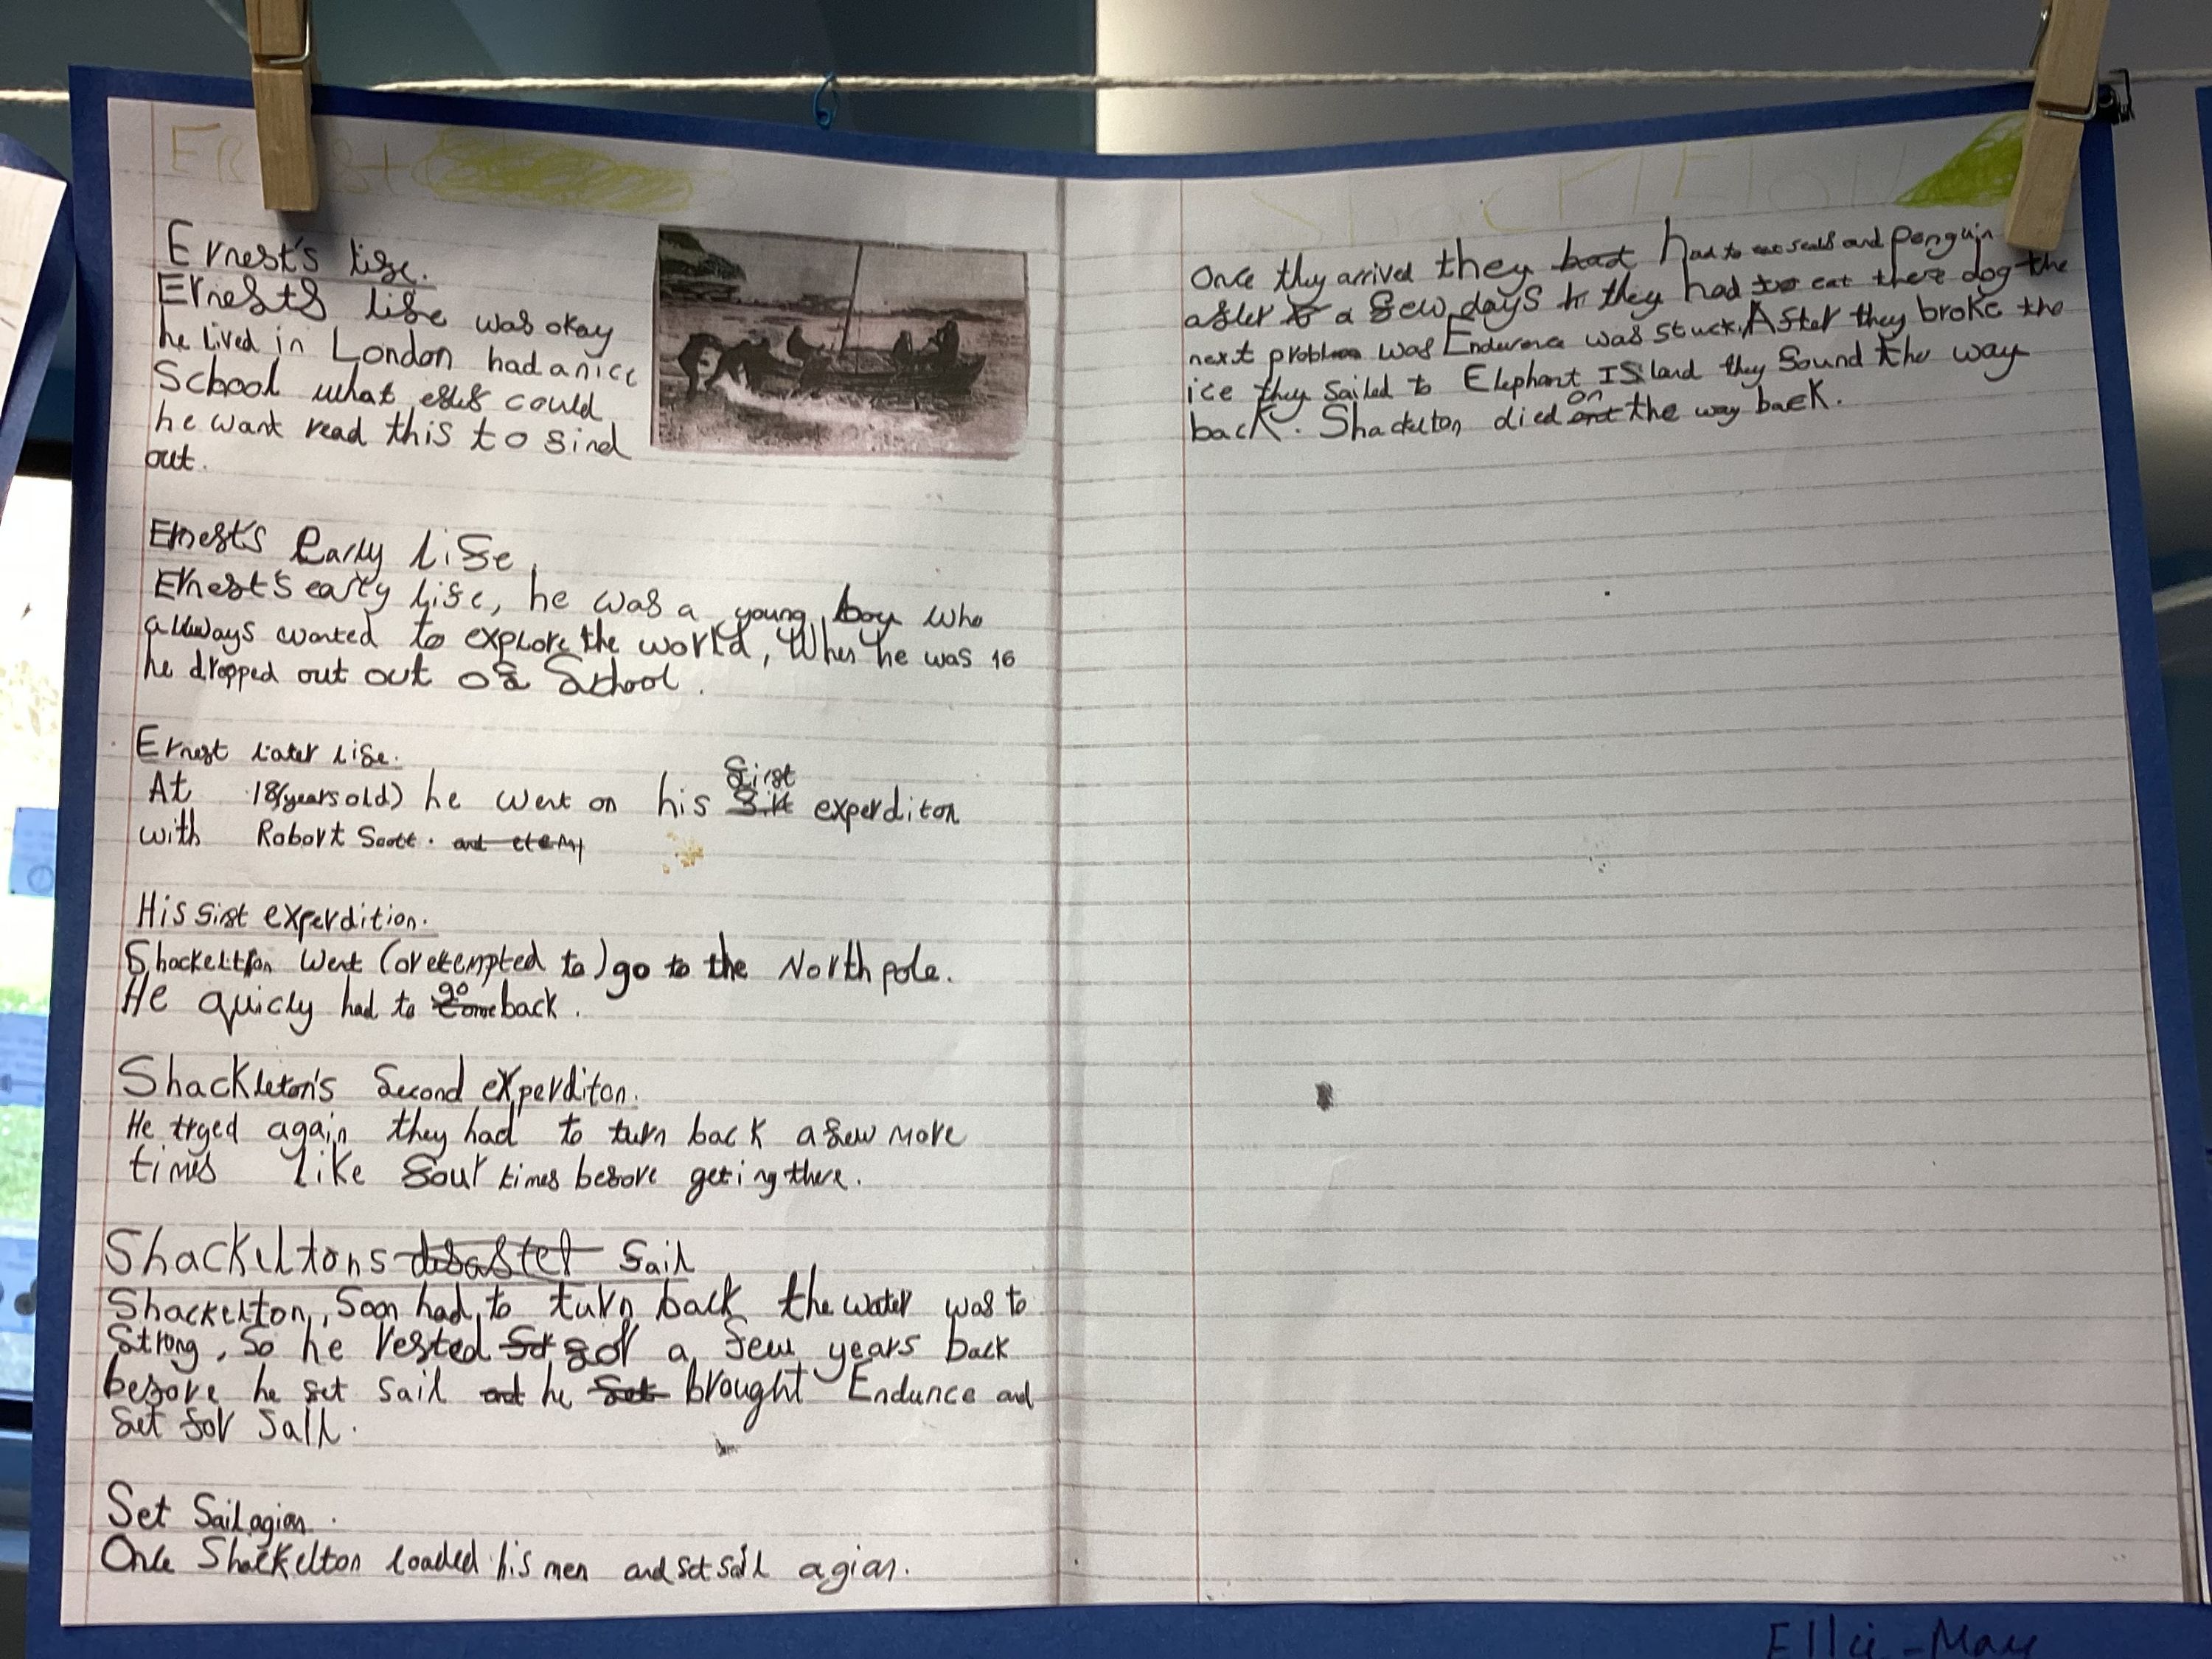 Ernest
Shackleton
Ernest's life.
Ernests life was okay
he lived in London had a nice
School what eles could
he want read this to find
out.
Ernest's Early life.
Ernest's early life, he was a young boy who
allways wanted to explore the world, When he was 16
he dropped out out of School.
Ernest later life.
first
At 18(years old) he went on his firt experditon
with Robort Scott.
His first experdition.
Shackeltton went (or etempted to) go to the North pole.
go
He quicly had to come back.
Shackleton's Second experditon.
He tryed again they had to turn back a few more
times like four times before geting there.
Shackeltons disaster Sail
Shackelton, Soon had to turn back the water was to
strong, So he rested for a few years back
before he set sail and he set brought Endunce and
set for sail.
Set Sail agian.
Once Shackelton loaded his men and set sail agian.
Once they arrived they had had to eat seals and penguin
after a few days they had to eat there dog the
next problem was Endurence was stuck, After they broke the
ice they sailed to Elephant ISland they found the way
on
back. Shackelton died the way back.
Ellie-May